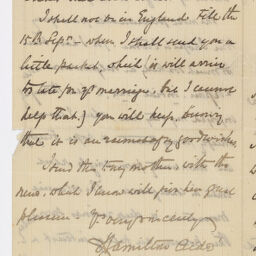 I shall not be in England till the
15th Sepr - when I shall send you a
little packet, which (it will arrive
too late for yr marriage, but I cannot
help that) you will keep, knowing
that it is an earnest of my good wishes.
I send this to my mother, with the
news, which I know will give her great
pleasure - yr very sincerely
Hamilton Aïdé